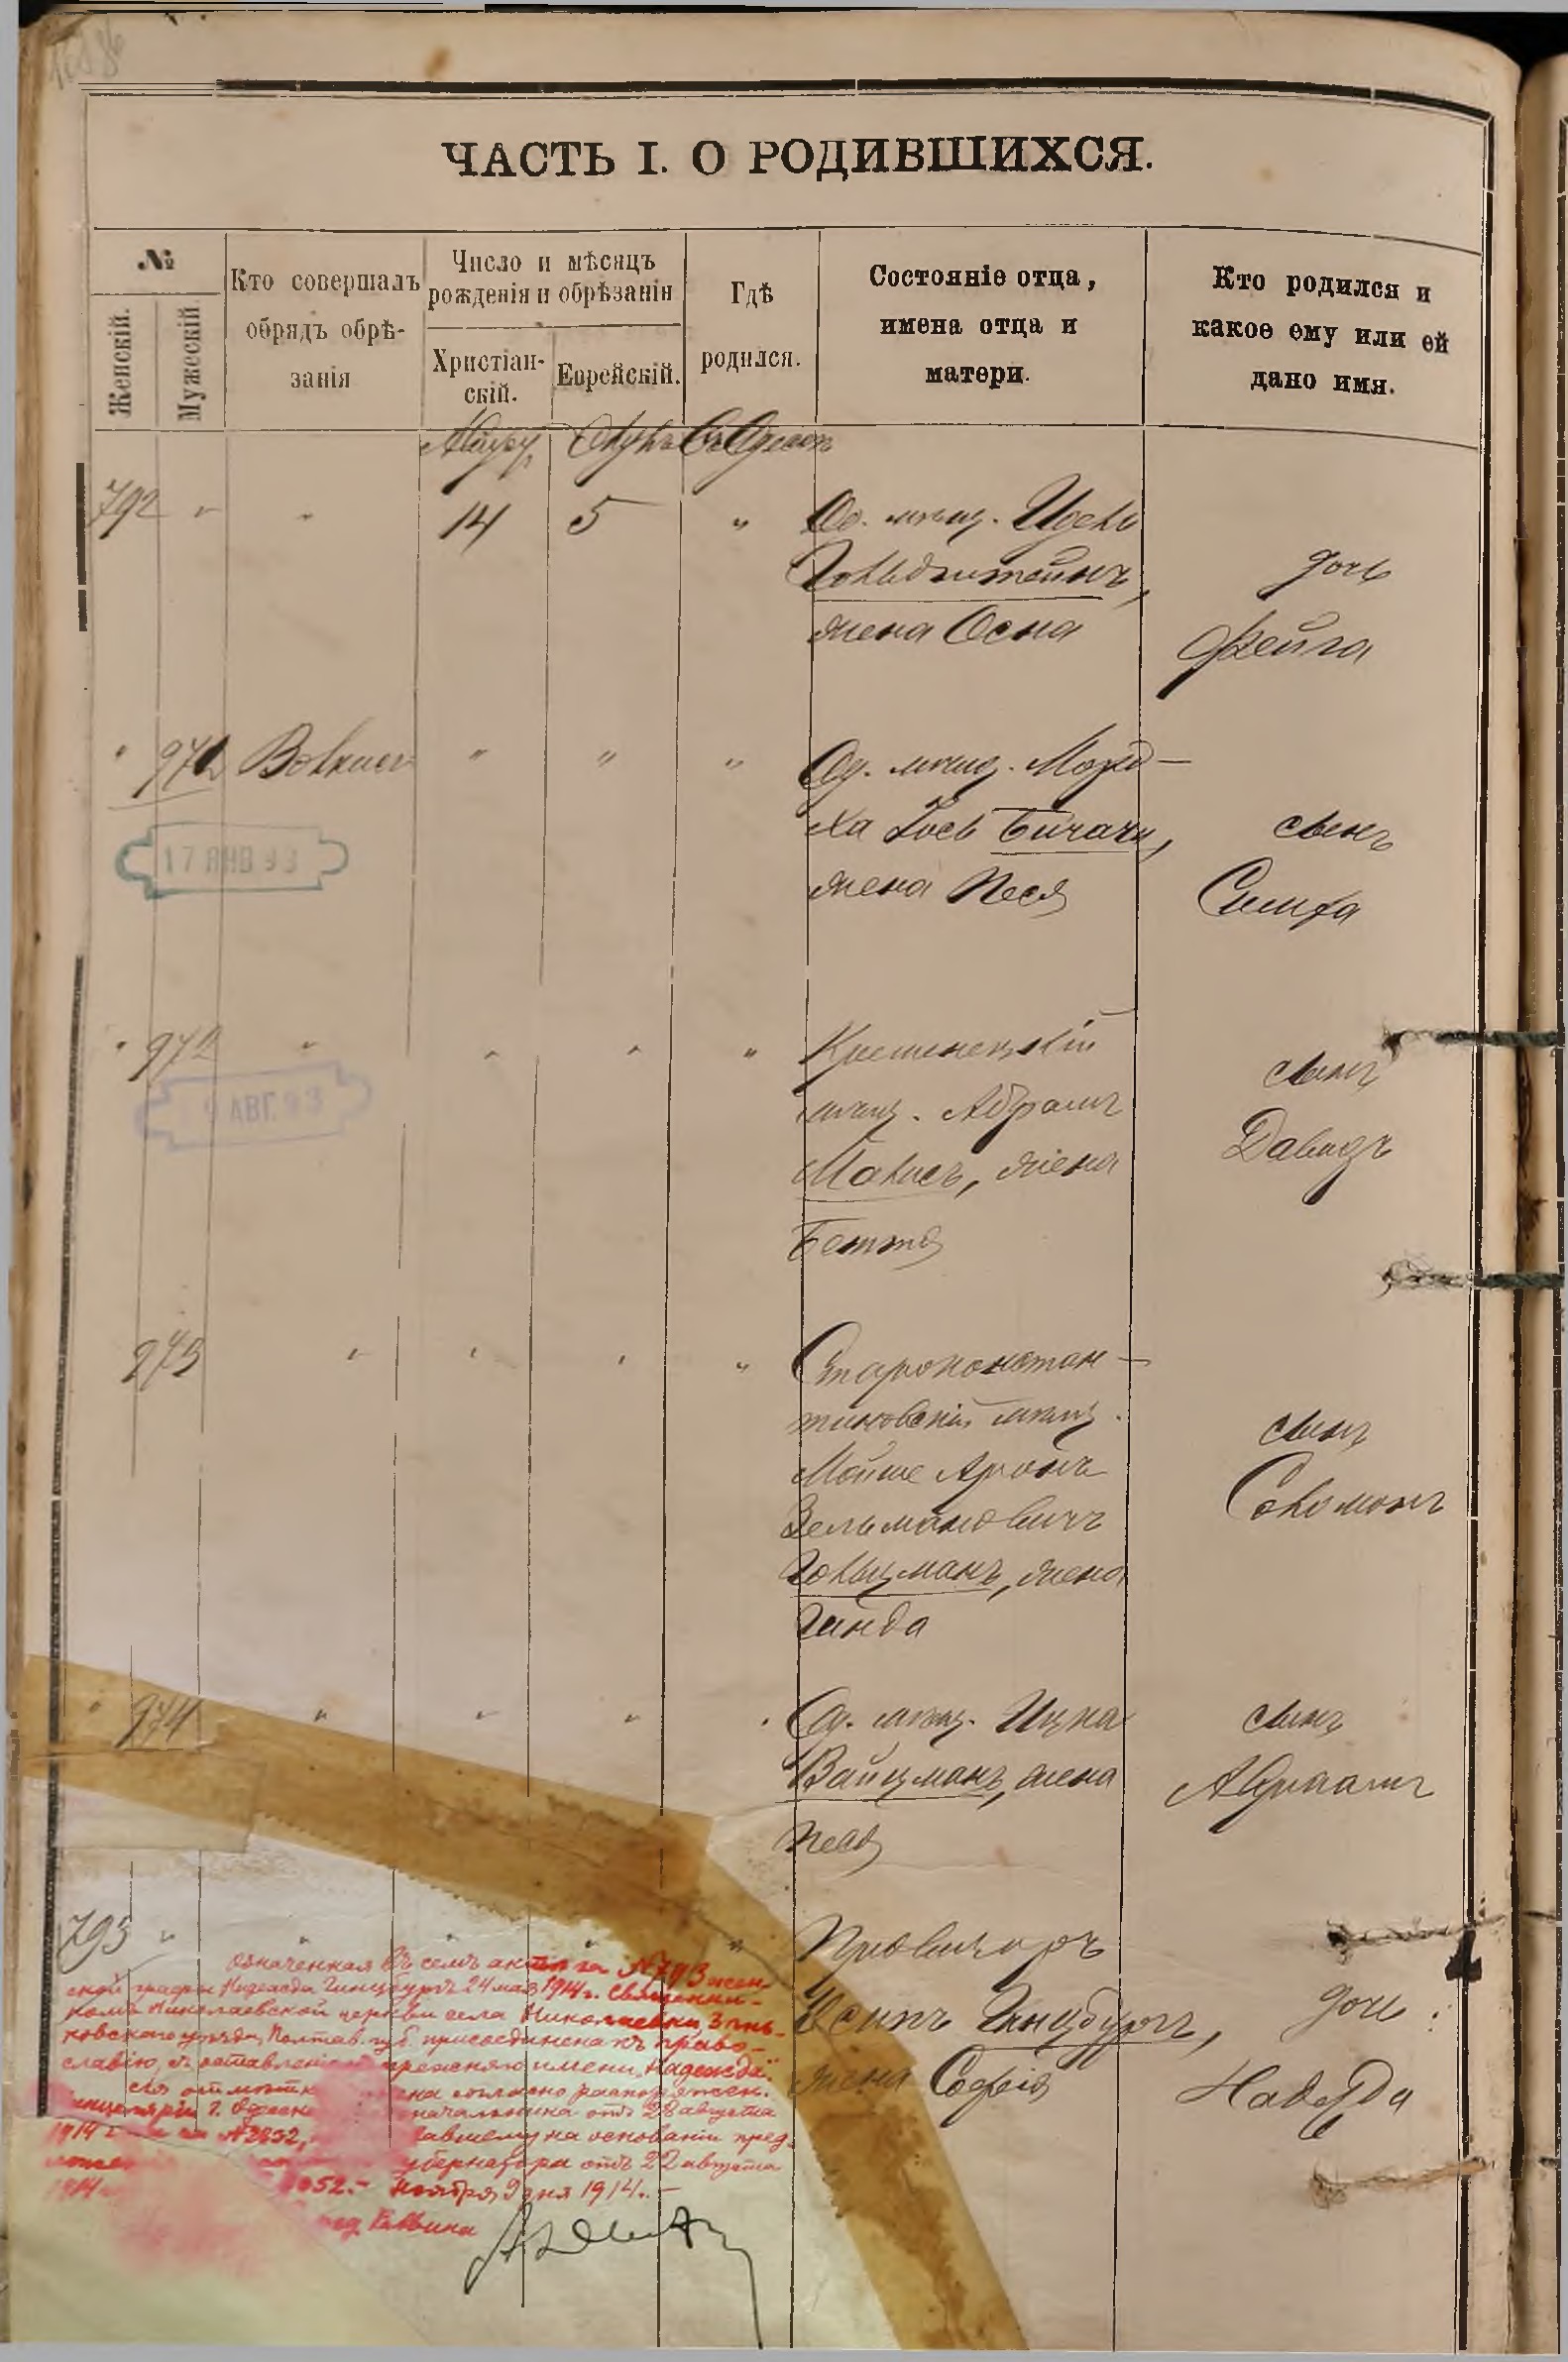 ЧАСТЬ I. О РОДИВШИХСЯ.
№
Женскій.
Мужескій.
Кто совершалъ
обрядъ обрѣ-
занія
Число и мѣсяцъ
рожденія и обрѣзанія
Христіан-
скій.
Еврейскій.
Гдѣ
родился.
Состояніе отца,
имена отца и
матери.
Кто родился и
какое ему или ей
дано имя.
792 " " 14 5 "
Од. мѣщ. Идель
Гольдштейнъ,
жена Осна
дочь
Фейга
" 971 " " "
Од. мѣщ. Мορд-
ха Іось Бичачи,
жена Песя
сынъ
Симха
17 ЯНВ 93
" 972 " " " "
Кременецкій
мѣщ. Абрамъ
жена
Бетя
сынъ
Давидъ
9 АВГ. 93
973 " " " "
Староконстан-
тиновскій мѣщ.
Мойше Аронъ
Зельмановичъ
Гольцманъ, жена
Гинда
сынъ
Соломонъ
" 974 " " " "
Од. мѣщ. Ицка
Вайцманъ, жена
Песя
сынъ
Абрамъ
793 " " " " "
Провизоръ
Осипъ Гинцбургъ,
жена Софія
дочь:
Надежда
Означенная въ семъ актѣ за №793 жен
ской графы Надежда Гинцбургъ 24 мая 1914 г. Священни-
комъ Николаевской церкви села Николаевки, Зѣнь-
ковскаго уѣзда, Полтав. губ. присоединена къ право-
славію, съ оставленіемъ прежняго имени "Надежда".
на согласно распоряжен.
г. Одес начальника отъ 28 августа
1914 на основаніи пред.
губернатора отъ 22 августа
1914 052.- ноября 9 дня 1914.-
Раввина